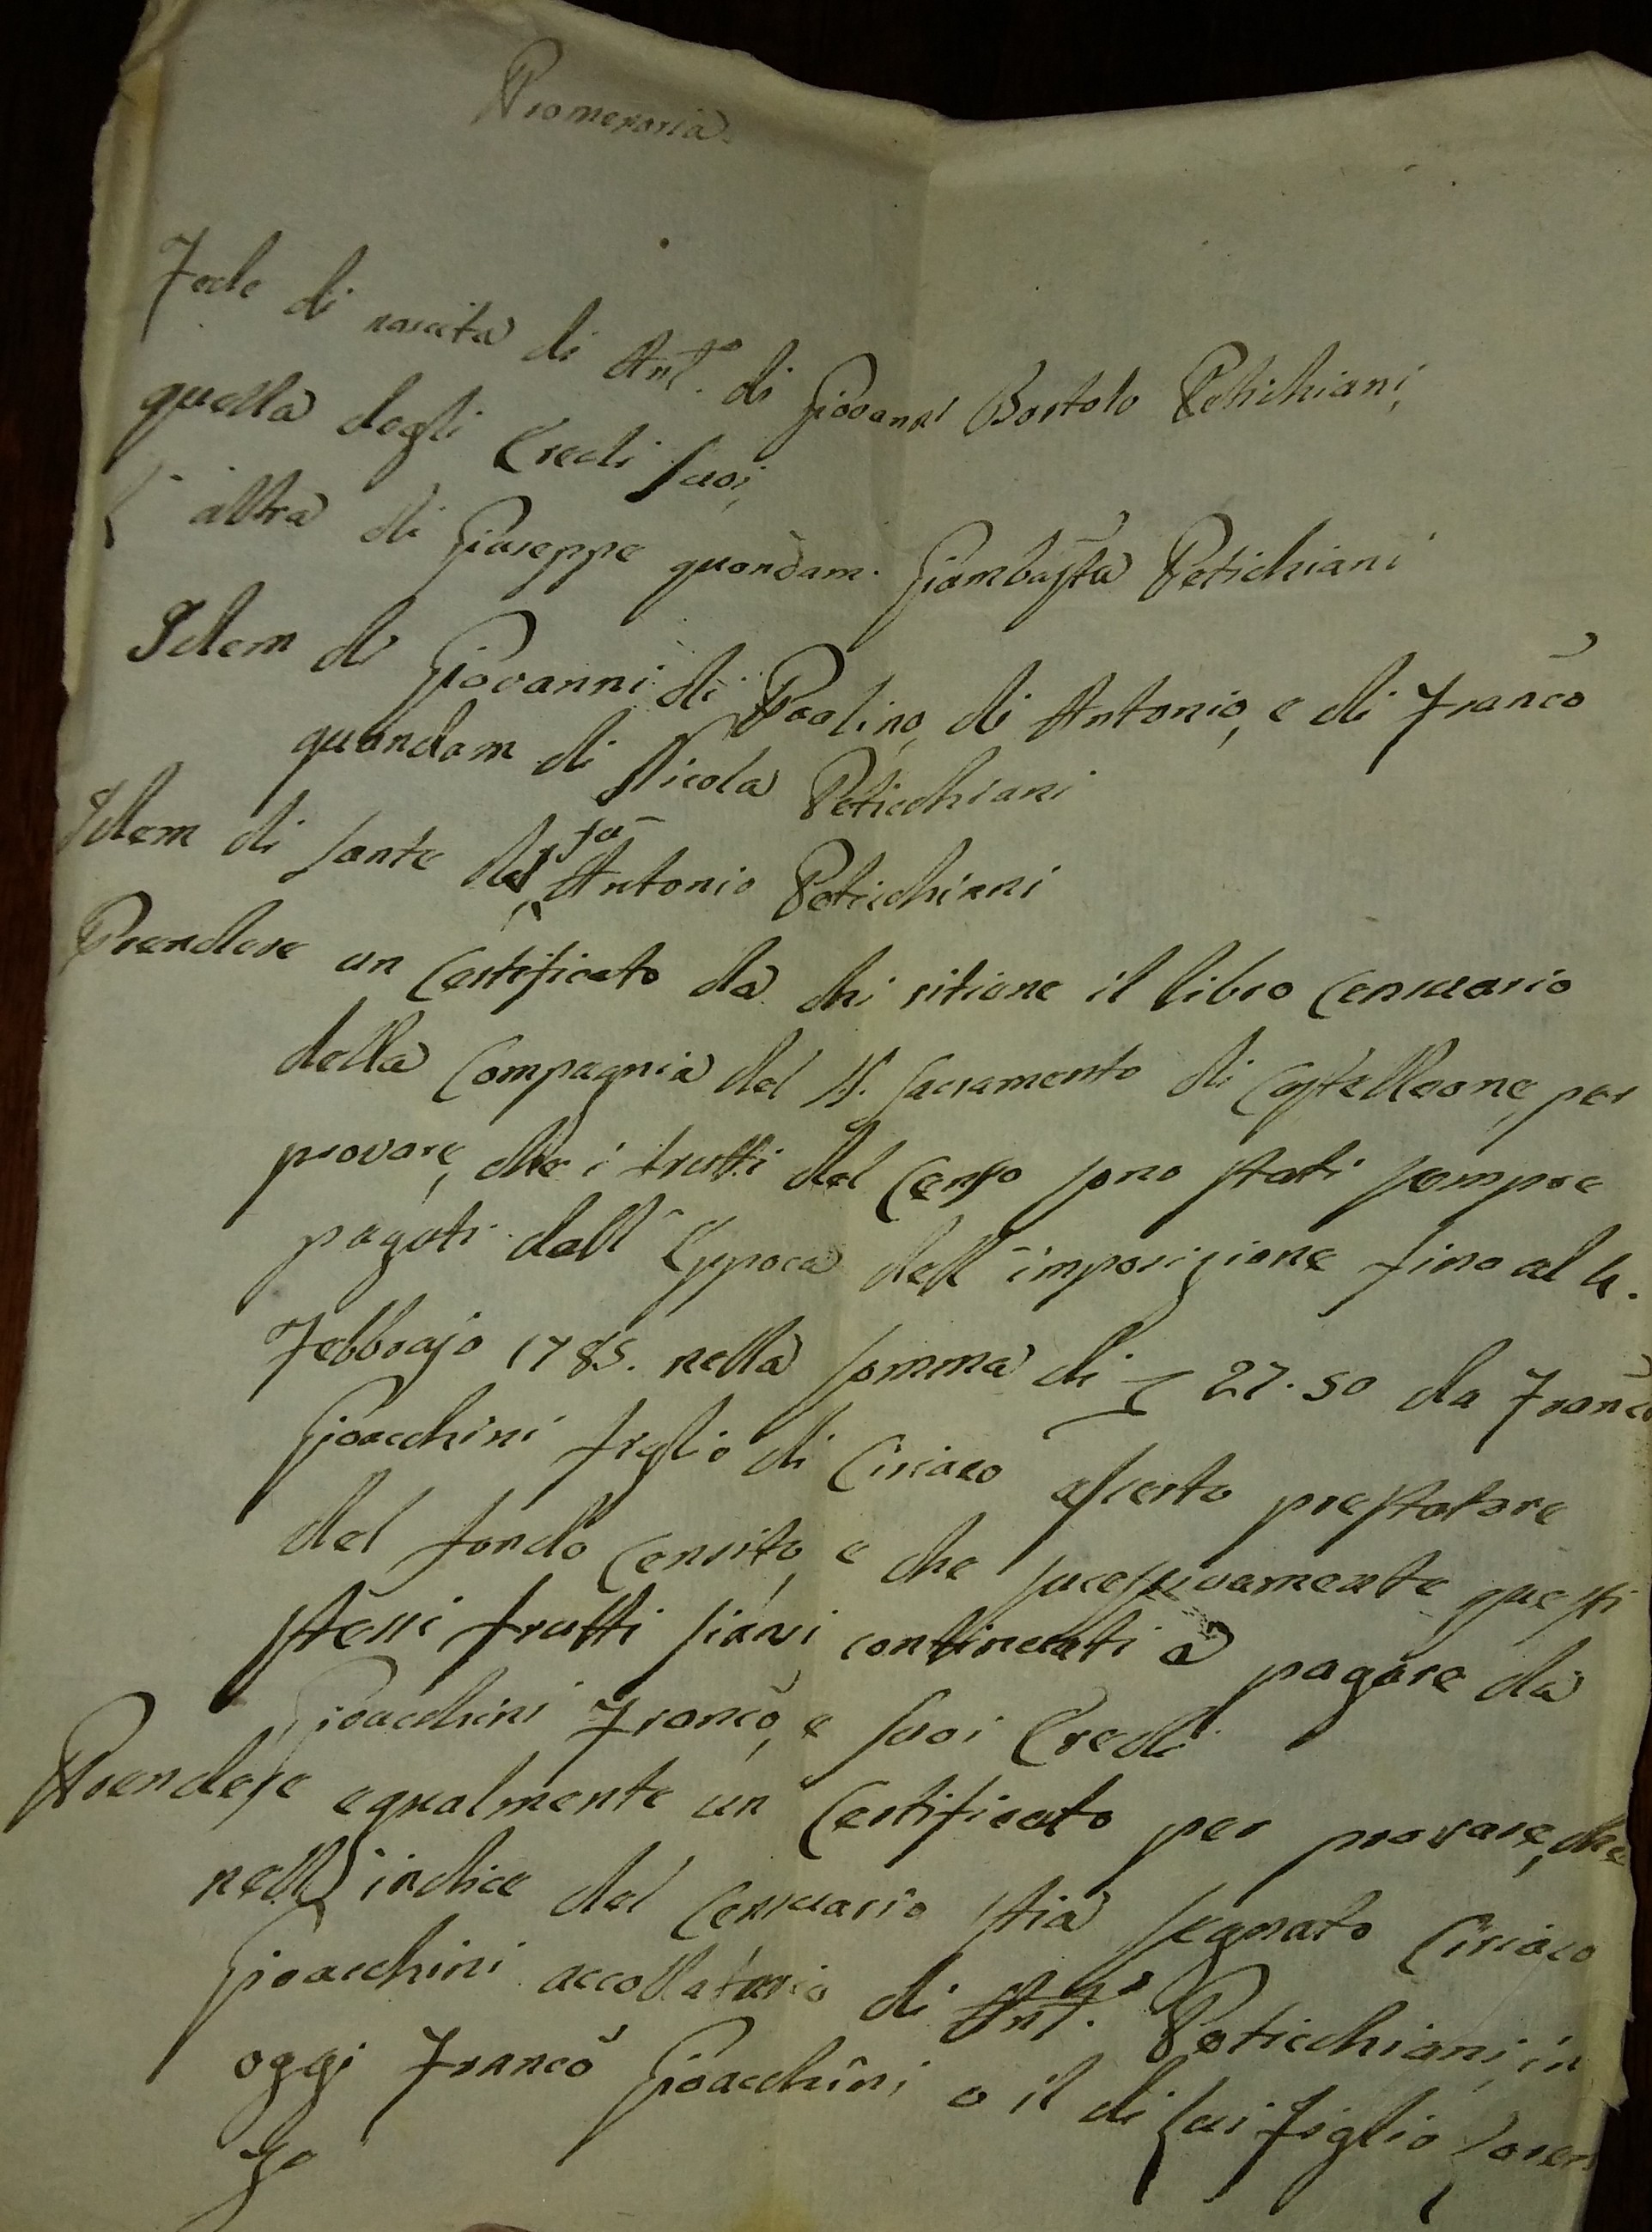 Promemoria
Fede di nascita di Ant.o di Giovanni Bortolo Petichiani,
quella degli Eredi suoi,
L'altra di Giuseppe quondam Giambatta Petichiani
Idem di Giovanni di Paolino, di Antonio, e di Franco
quondam di Nicola Peticchiani
Idem di Sante del fu Antonio Peticchiani
Prendere un Certificato da chi ritiene il libro Censuario
della Compagnia del SS. Sacramento di Castelleone, per
provare, che i frutti del Censo sono stati sempre
pagati dall'Eppoca dell'imposizione fino al 4.
Febbrajo 1785. nella somma di 27.50 da Franco
Gioacchini figlio di Ciriaco asserto prestatore
del fondo Censito, e che sucessivamente questi
stessi frutti siansi continuati a pagare da
Gioacchini Franco, e suoi Eredi
Prendere egualmente un Certificato per provare, che
nell'indice del Censuario stia segnato Ciriaco
Gioacchini accollatario di Ant.o Peticchiani, in
oggi Franco Gioacchini o il di lui figlio Loren
zo